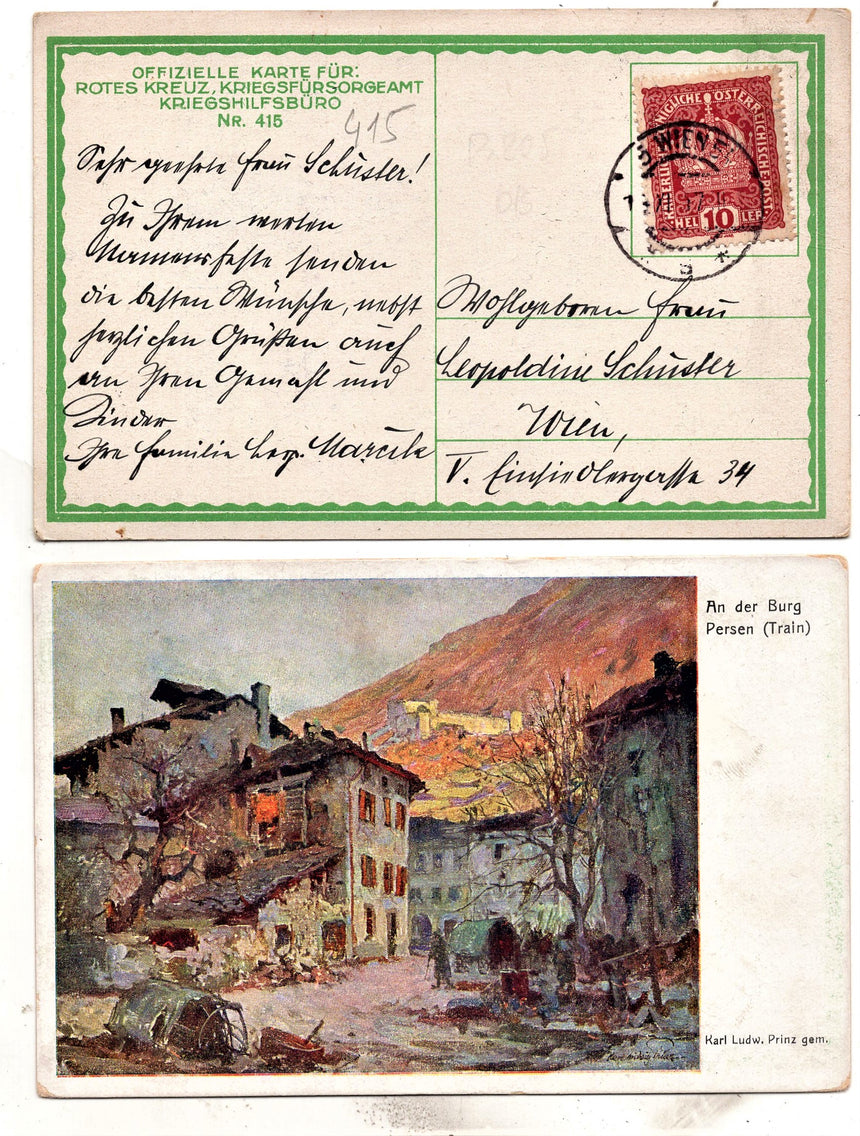 OFFIZIELLE KARTE FÜR:
ROTES KREUZ, KRIEGSFÜRSORGEAMT
KRIEGSHILFSBÜRO
NR. 415
415
Sehr geehrte Frau Schuster!
Zu Ihrem werten
Namensfeste senden
die besten Wünsche, nebst
herzlichen Grüßen auch
an Ihren Gemahl und
Kinder
Ihre Familie Leop.
KAISERLICHE KÖNIGLICHE ÖSTERREICHISCHE POST
HEL 10 LER
WIEN
Wohlgeboren Frau
Leopoldine Schuster
Wien,
V. Einsiedlergasse 34
An der Burg
Persen (Train)
Karl Ludw. Prinz gem.